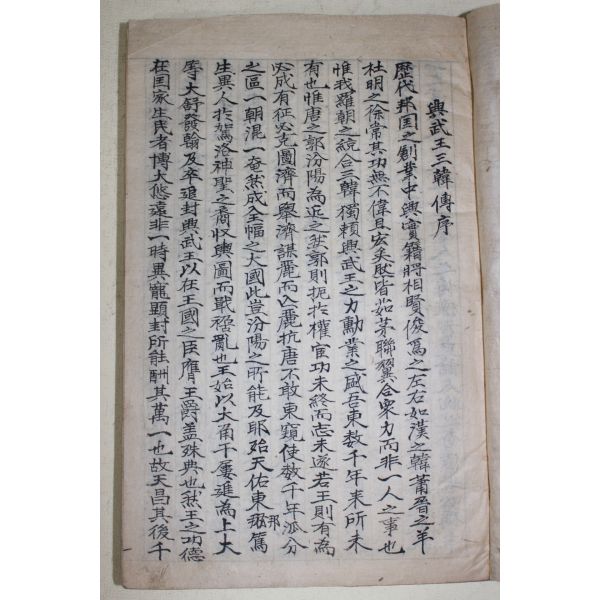 興武王三韓傳序
歷代邦国之創業中興實籍將相賢俊爲之左右如漢之韓蕭晉之羊
杜明之徐常其功無不偉且宏矣然皆茹茅聯翼合衆力而非一人之事也
惟我羅朝之統合三韓獨賴興武王之力勳業之盛吾東数千年来所未
有也惟唐之郭汾陽為近之然郭則扼於權宦功未終而志未遂若王則有為
必成有征必克圖濟而舉濟謀麗而入麗抗唐不敢東窺使数千年瓜分
之區一朝混一奄然成全幅之大國此豈汾陽之所能及耶始天佑東邦篤
生異人於駕洛神聖之裔收輿圖而戡禍亂也王始以大角干屡進為上大
等大舒發翰及卒追封興武王以在王國之臣膺王爵盖殊典也然王之功德
在国家生民者博大悠遠非一時異寵顕封所能酬其萬一也故天昌其後千